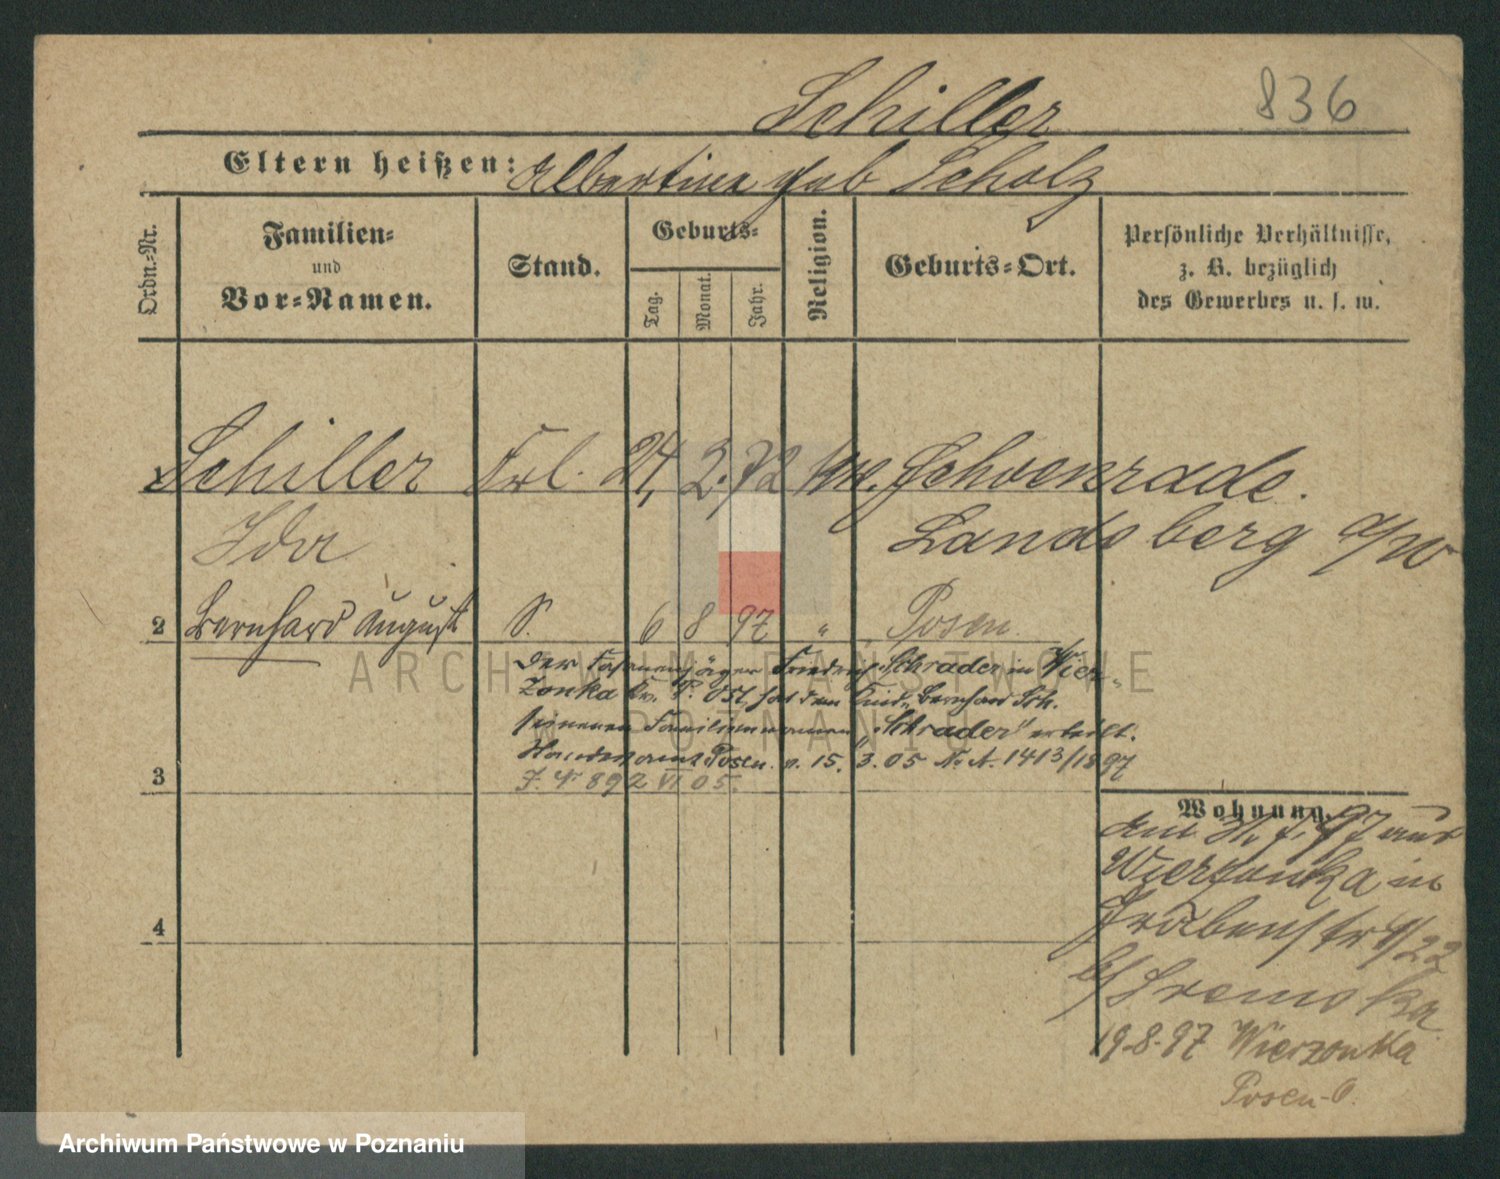 836
Schiller
Eltern heißen: Albertine geb Scholz
Ordn.-Nr.
Familien-
und
Vor-Namen.
Stand.
Geburts-
Tag.
Monat.
Jahr.
Religion.
Geburts-Ort.
Persönliche Verhältnisse,
z. B. bezüglich
des Gewerbes u. s. w.
Schiller Frl. 24. 2. 72 Schoenrade.
Ida Landsberg a/W
2 Bernhard August S. 6 8 97 " Posen.
Der Friedrich Schrader in Wier-
zonka Kr. P. Ost, hat dem Kind, Bernhard Sch.
seinen Familiennamen "Schrader" erteilt.
Posen. v. 15. 3. 05 N. A. 1413/1897
J. N 892 VI 05.
3
Wohnung.
Am 31. 7. 97 aus
Wierzonka in
Grabenstr
4
b/
19.8.97 Wierzonka
Posen-O.
ARCHIWUM PAŃSTWOWE
W POZNANIU
Archiwum Państwowe w Poznaniu